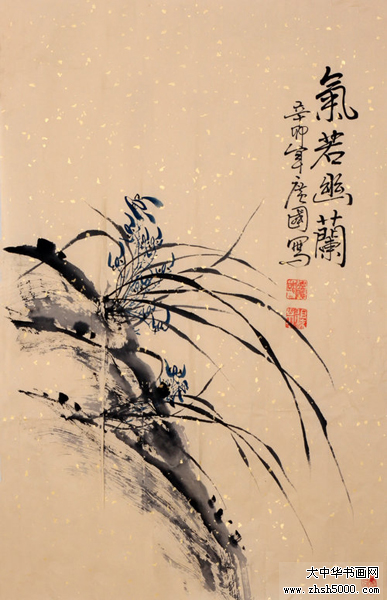 氣若幽蘭
辛卯年广國寫
大中华书画网
www.zhsh5000.com